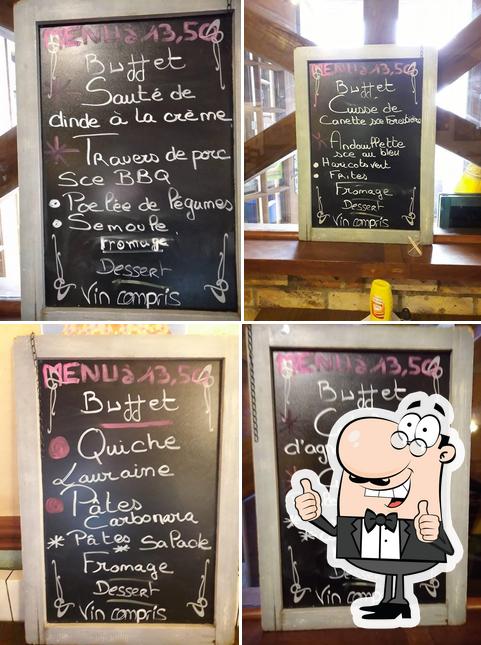 MENU à 13,50
Buffet
Sauté de
dinde à la crème
Travers de porc
Sce BBQ
Poelée de légumes
Semoule
Fromage
Dessert
Vin compris
MENU à 13,50
Buffet
Cuisse de
Canette sce Forestière
Andouillette
sce au bleu
Haricots vert
Frites
Fromage
Dessert
Vin compris
MENU à 13,50
Buffet
Quiche
Lauraine
Pâtes
Carbonara
Pâtes Salade
Fromage
Dessert
Vin compris
MENU à 13,50
Buffet
d'ag
De
Vin com